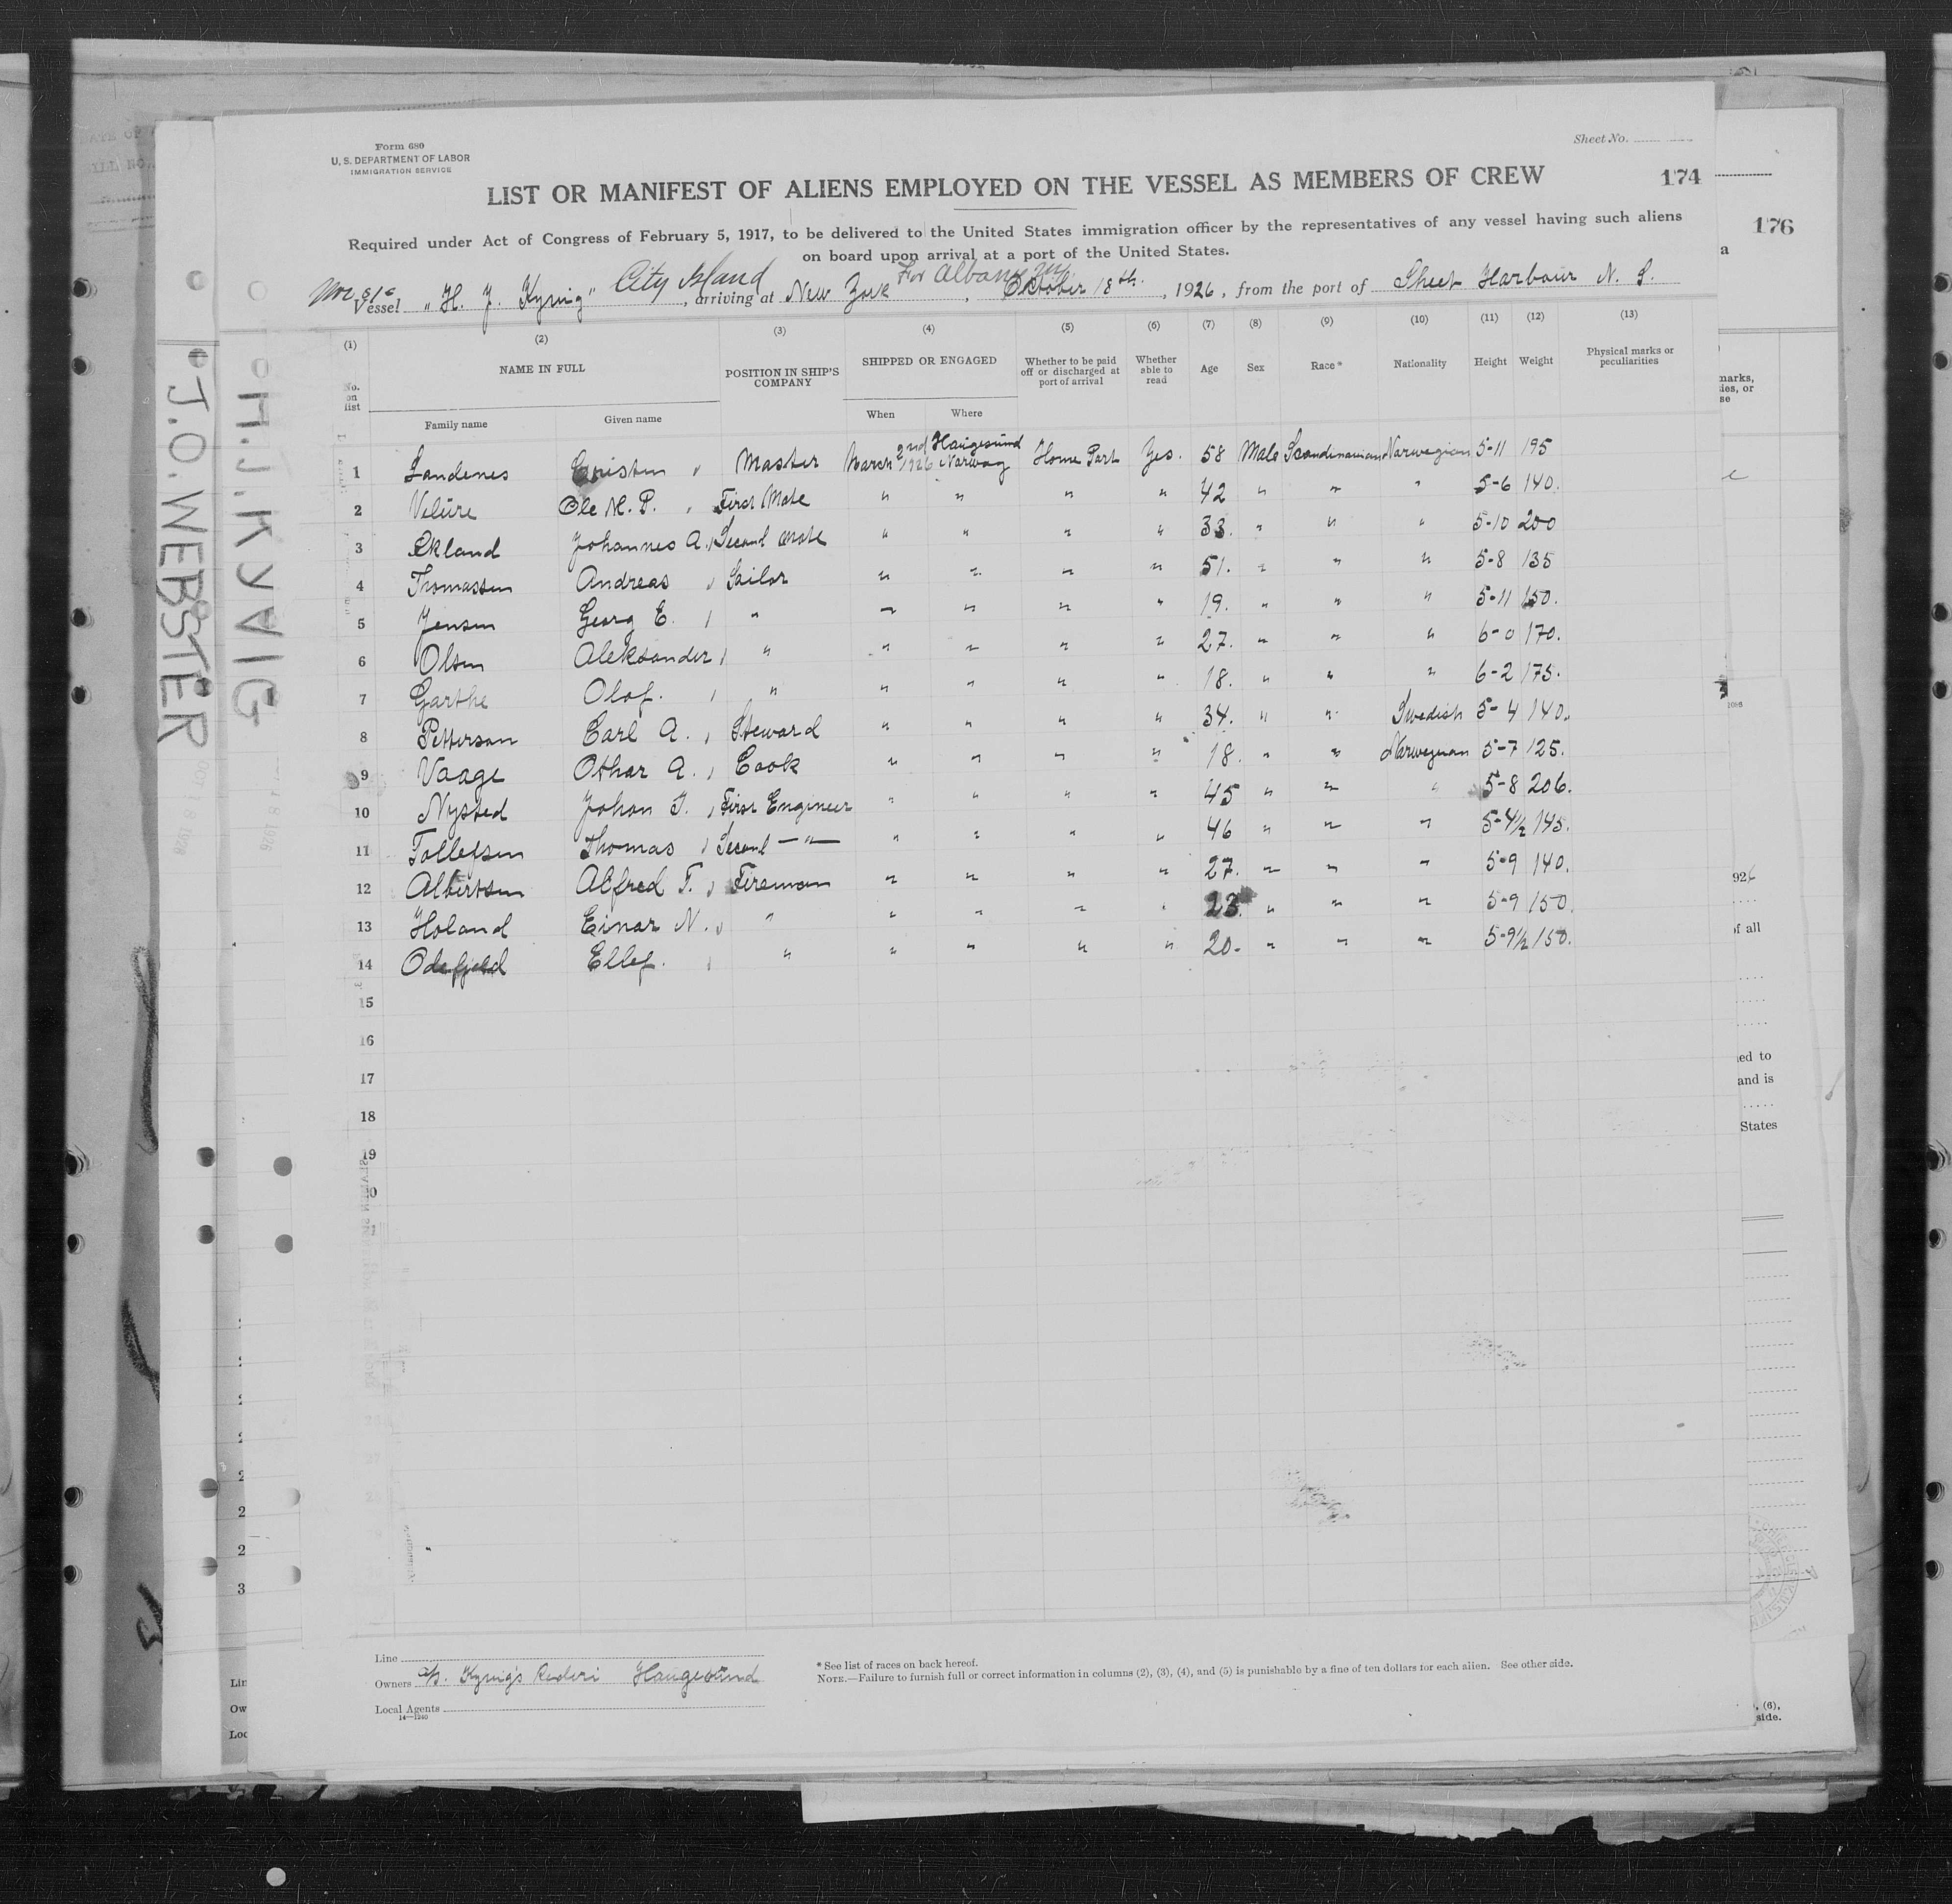 Form 680
U. S. DEPARTMENT OF LABOR
IMMIGRATION SERVICE
Sheet No.
LIST OR MANIFEST OF ALIENS EMPLOYED ON THE VESSEL AS MEMBERS OF CREW
174
176
Required under Act of Congress of February 5, 1917, to be delivered to the United States immigration officer by the representatives of any vessel having such aliens
on board upon arrival at a port of the United States.
a
City Island For Albany
Vessel "H. J. Kyvig", arriving at New York, October 18th, 1926, from the port of Sheet Harbour N. S.
(1) (2) (3) (4) (5) (6) (7) (8) (9) (10) (11) (12) (13)
No. on list NAME IN FULL POSITION IN SHIP'S COMPANY SHIPPED OR ENGAGED Whether to be paid off or discharged at port of arrival Whether able to read Age Sex Race* Nationality Height Weight Physical marks or peculiarities
Family name Given name When Where
1 Sandenes Cristen Master March 2nd 1926 Haugesund Norway Home Port Yes. 58 Male Scandinavian Norwegian 5-11 195
2 Velure Ole M. P. First Mate " " " " 42 " " " 5-6 140.
3 Økland Johannes A. Second Mate " " " " 33. " " " 5-10 200
4 Thomassen Andreas Sailor " " " " 51. " " " 5-8 135
5 Jensen Georg E. " " " " " 19. " " " 5-11 150.
6 Olsen Aleksander " " " " " 27. " " " 6-0 170.
7 Garthe Olof. " " " " " 18. " " " 6-2 175.
8 Petterson Carl A. Steward " " " " 34. " " Swedish 5-4 140.
9 Vaage Othar A. Cook " " " " 18. " " Norwegian 5-7 125.
10 Nysted Johan T. First Engineer " " " " 45 " " " 5-8 206.
11 Tollefsen Thomas Second —"— " " " " 46 " " " 5-4½ 145.
12 Albertsen Alfred T. Fireman " " " " 27. " " " 5-9 140.
13 Holand Einar N. " " " " " 23. " " " 5-9 150.
14 Odefjeld Ellef. " " " " " 20. " " " 5-9½ 150.
15
16
17
18
19
H.J. KYVIG
J.O. WEBSTER
OCT 18 1926
marks,
ies, or
se
926
of all
ed to
and is
States
Line
Owners H. Kyvig's Rederi Haugesund
Local Agents
14—1240
* See list of races on back hereof.
NOTE.—Failure to furnish full or correct information in columns (2), (3), (4), and (5) is punishable by a fine of ten dollars for each alien. See other side.
Lin
Ow
Loc
, (6),
side.